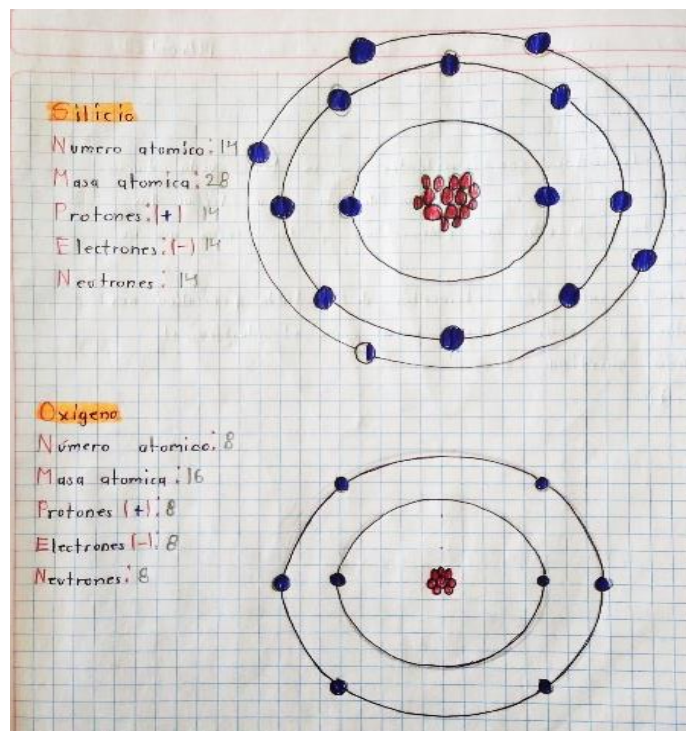 Silicio
Numero atomico: 14
Masa atomica: 28
Protones: (+) 14
Electrones: (-) 14
Neutrones: 14
Oxígeno
Número atomico: 8
Masa atomica: 16
Protones (+): 8
Electrones (-): 8
Neutrones: 8